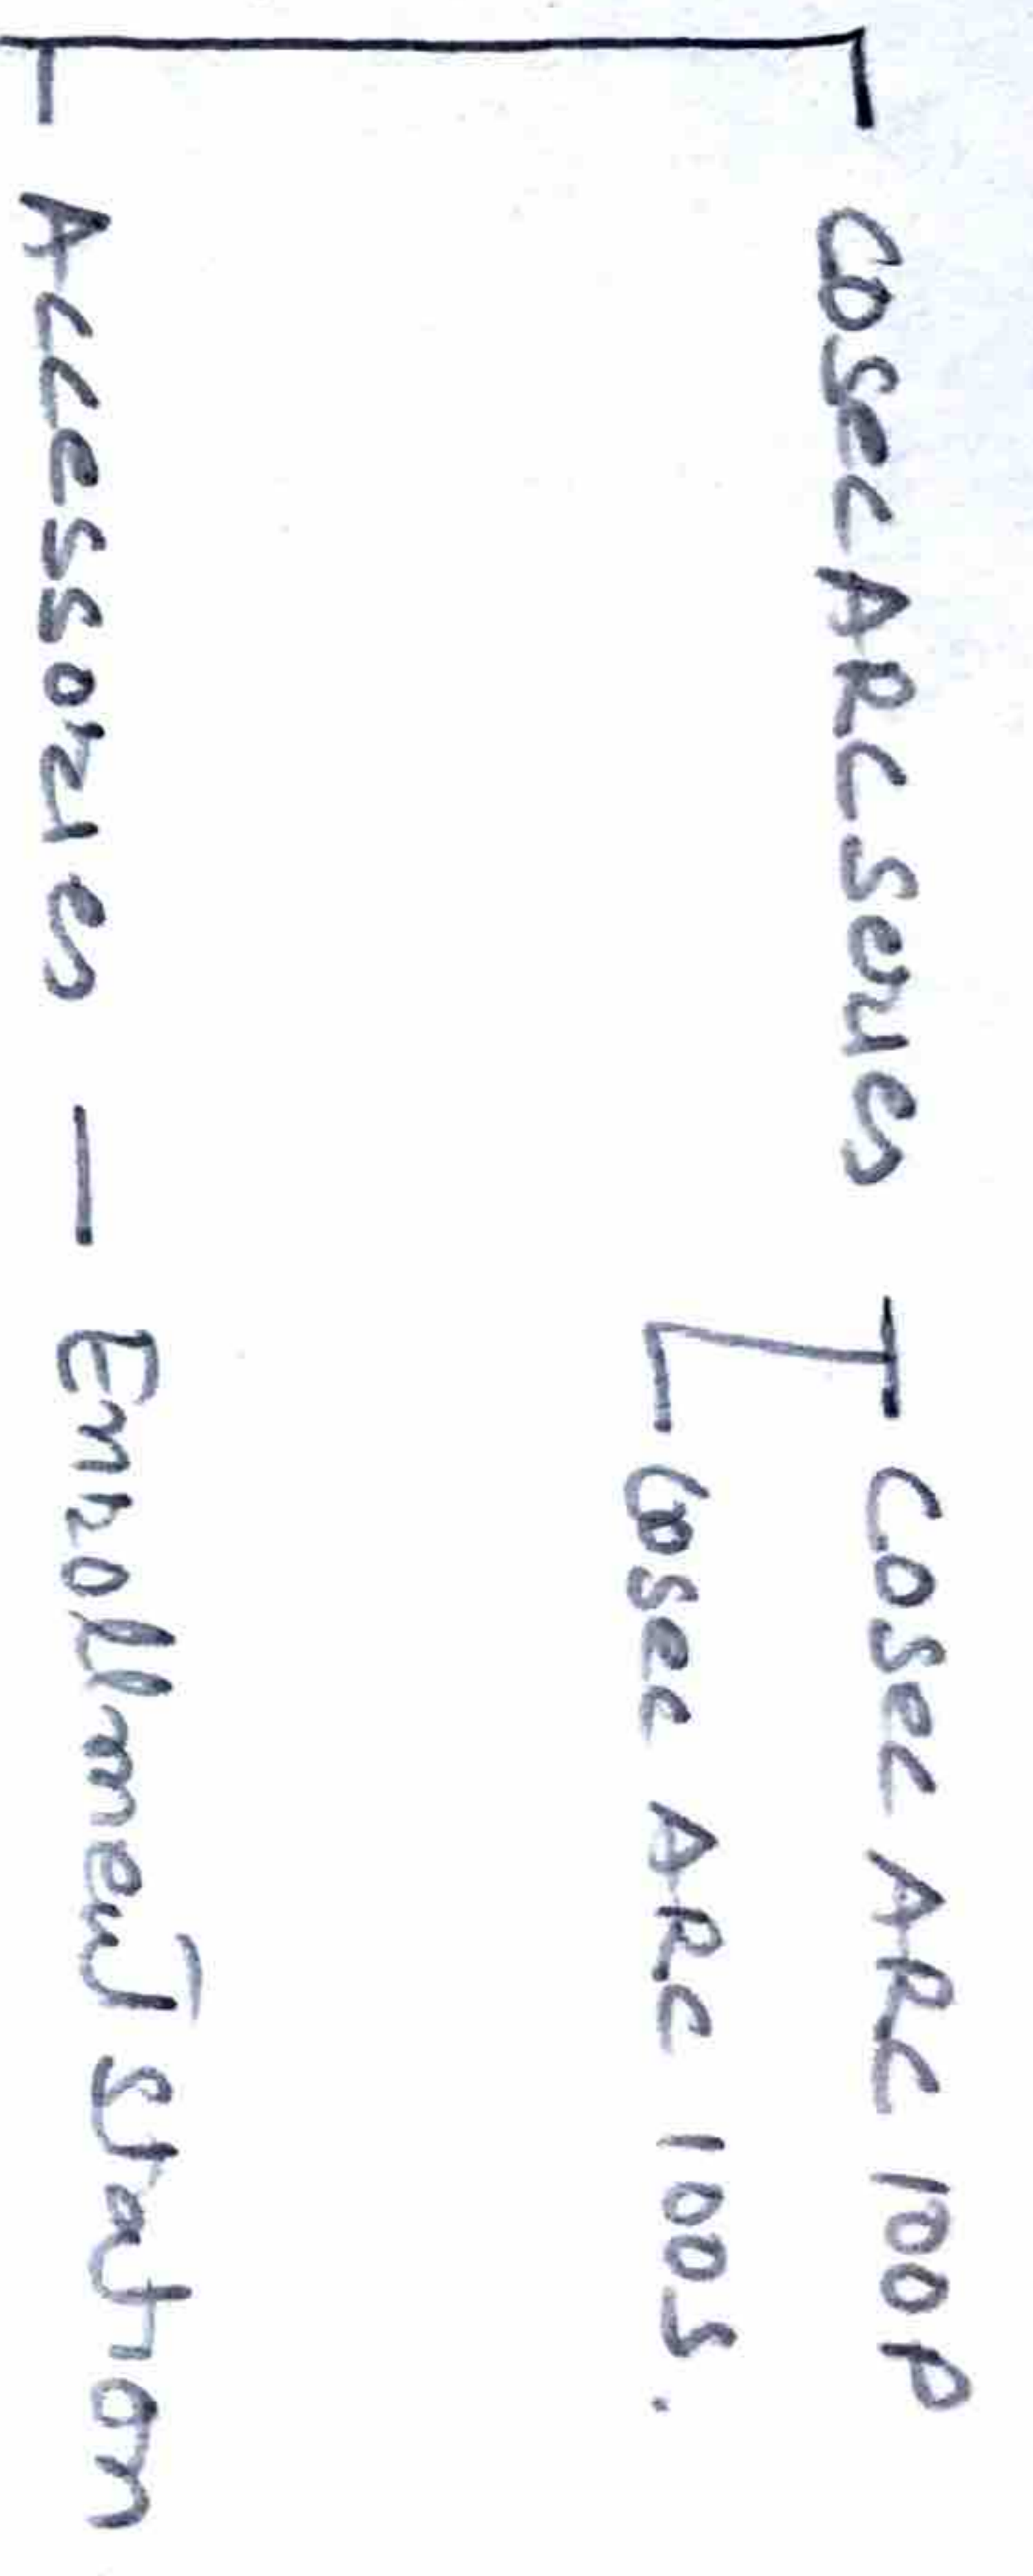 COSEC ARC Series
COSEC ARC 100P
COSEC ARC 100S.
Accessories
Enrollment Station